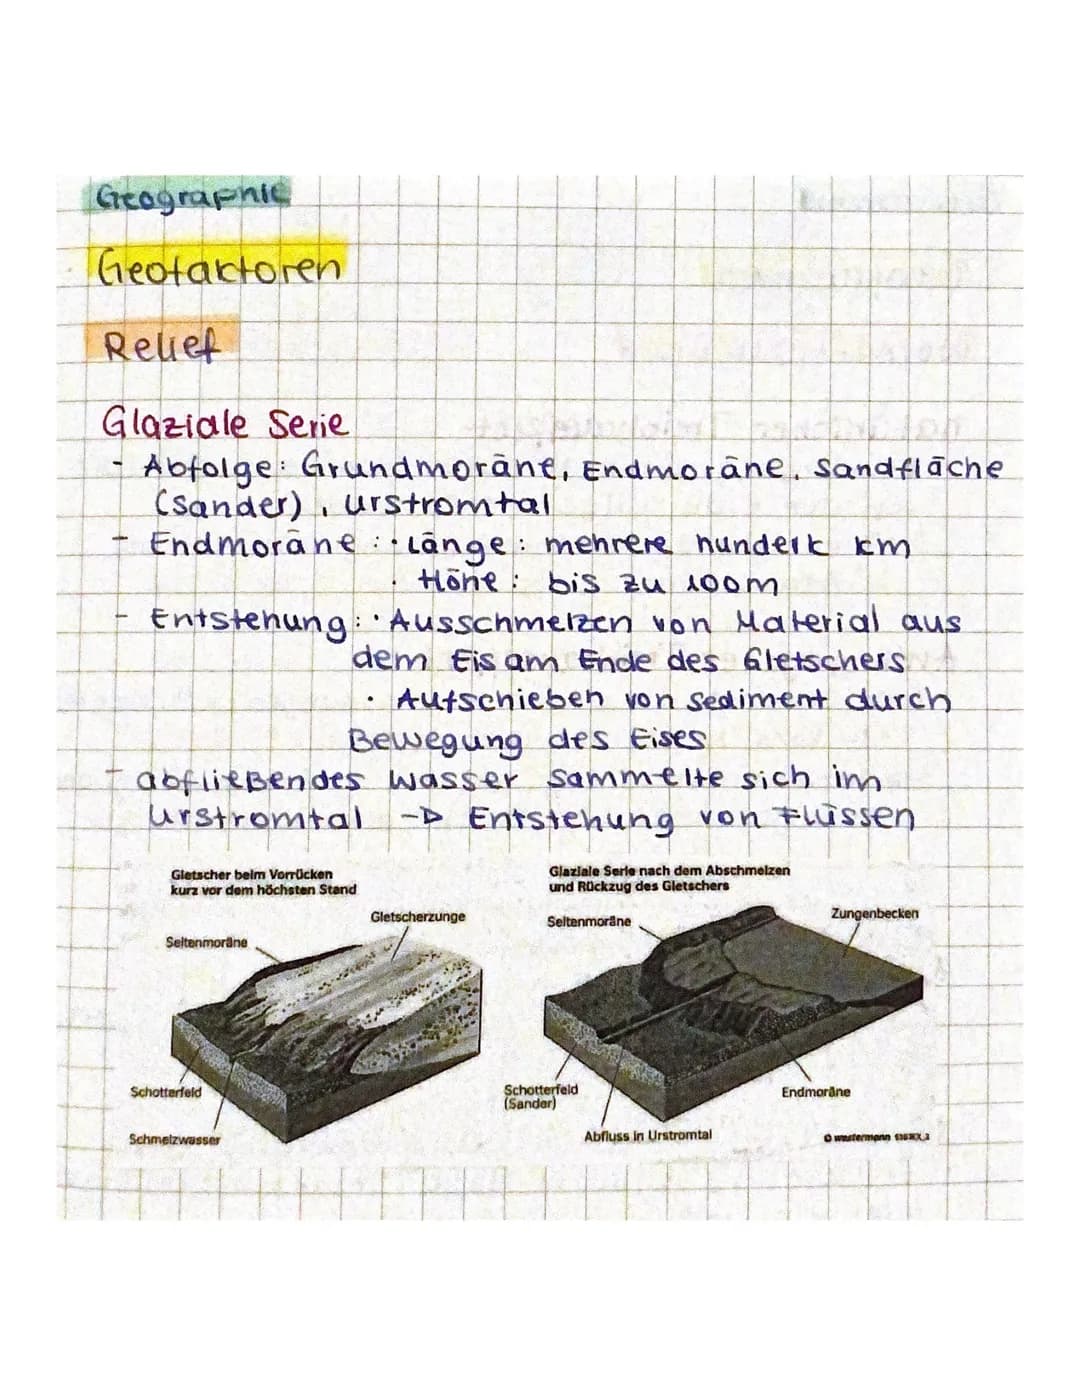 Geographie
Geofaktoren
Relief
Glaziale Serie
- Abfolge: Grundmoräne, Endmoräne, Sandfläche
(Sander), Urstromtal
- Endmoräne: · Länge: mehrere hundert km
· Höhe: bis zu 100m
- Entstehung: · Ausschmelzen von Material aus
dem Eis am Ende des Gletschers
· Aufschieben von Sediment durch
Bewegung des Eises
- abfließendes Wasser sammelte sich im
Urstromtal -> Entstehung von Flüssen
Gletscher beim Vorrücken
kurz vor dem höchsten Stand
Gletscherzunge
Seitenmoräne
Schotterfeld
Schmelzwasser
Glaziale Serie nach dem Abschmelzen
und Rückzug des Gletschers
Seitenmoräne
Zungenbecken
Schotterfeld
(Sander)
Endmoräne
Abfluss in Urstromtal
© westermann